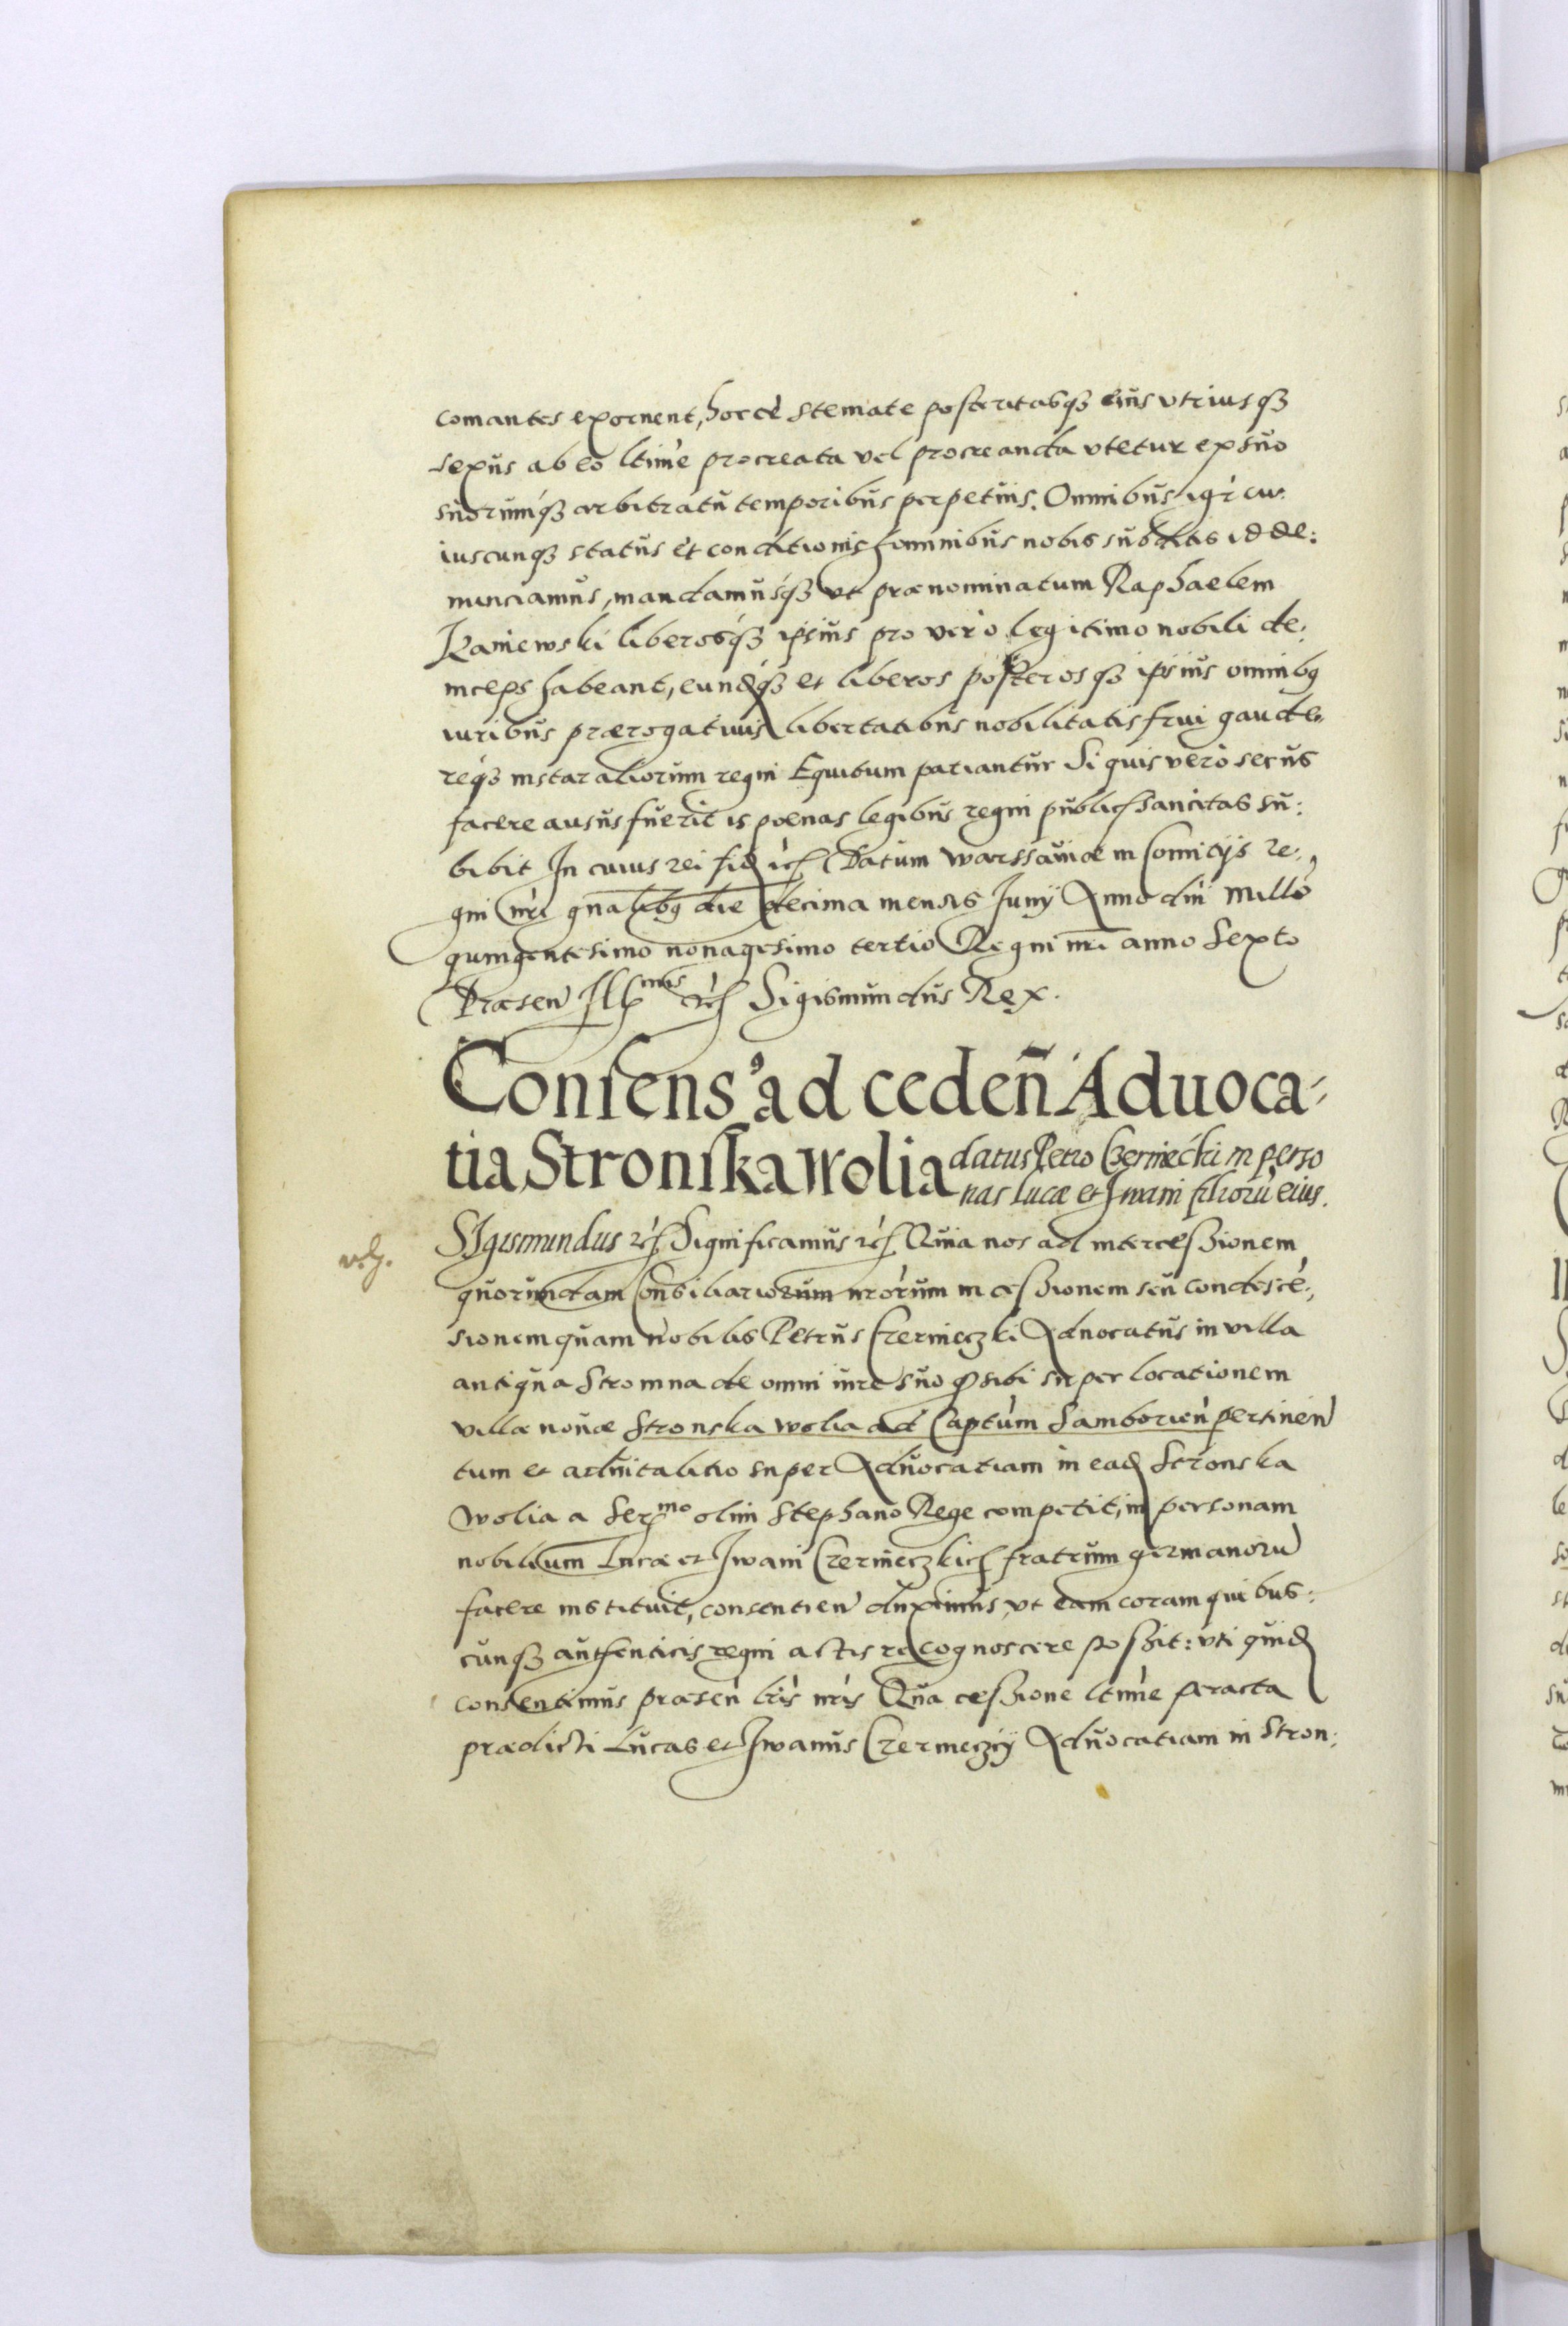 comantes exornent, hocce stemate posteritasq₃ eius utriusq₃
sexus ab eo ltime procreata vel procreanda utetur ex suo
suorumq₃ arbitratu temporibus perpetuis. Omnibus igr cu:
iuscunq₃ status et conditionis hominibus nobis subditis id de:
nunciamus, mandamusq₃ ut prænominatum Raphaelem
Kaniewski liberosq₃ ipsius pro vero legitimo nobili de:
inceps habeant, eundq₃ et liberos posterosq₃ ipsius omnibq
iuribus prærogatiuis libertatibus nobilitatis frui gaude:
req₃ instar aliorum regni Equitum patiantur Si quis vero secus
facere ausus fuerit is poenas legibus regni publich sancitas su:
bibit In cuius rei fid etc Datum Warssauiæ in Comitijs re:
gni nri gnalibq die decima mensis Junij Anno dni Millo
quingentesimo nonagesimo tertio Regni nri anno Sexto
Præsen Illmis etc Sigismundus Rex.
Consens9 ad cedeñ Aduoca:
tia Stronska Wolia datus Petro Czernieckii in perso
nas Lucæ et Iwani filiorū eius.
SIgismundus etc Significamus etc Quia nos ad intercessionem
quorundam Consiliariorum nrorum in cessionem seu condesce:
sionem quam nobilis Petrus Czernieczki Aduocatus in villa
antiqua Stromna de omni iure suo ꝓ sibi super locationem
villæ nouæ Stronska wolia ad Captum Samborien pertinen
tum et aduitalitio super Aduocatiam in ead Stronska
Wolia a Sermo olim Stephano Rege competit, in personam
nobilium Lucæ et Iwani Czernieczkich fratrum germanoru
facere instituit, consentien duximus, ut eam coram quibus:
cunq₃ authenticis regni actis recognoscere possit: uti quid
consentimus præsen lris nris Qua cessione ltime peracta
prædicti Lucas et Iwanus Czernieczcij Aduocatiam in Stron: